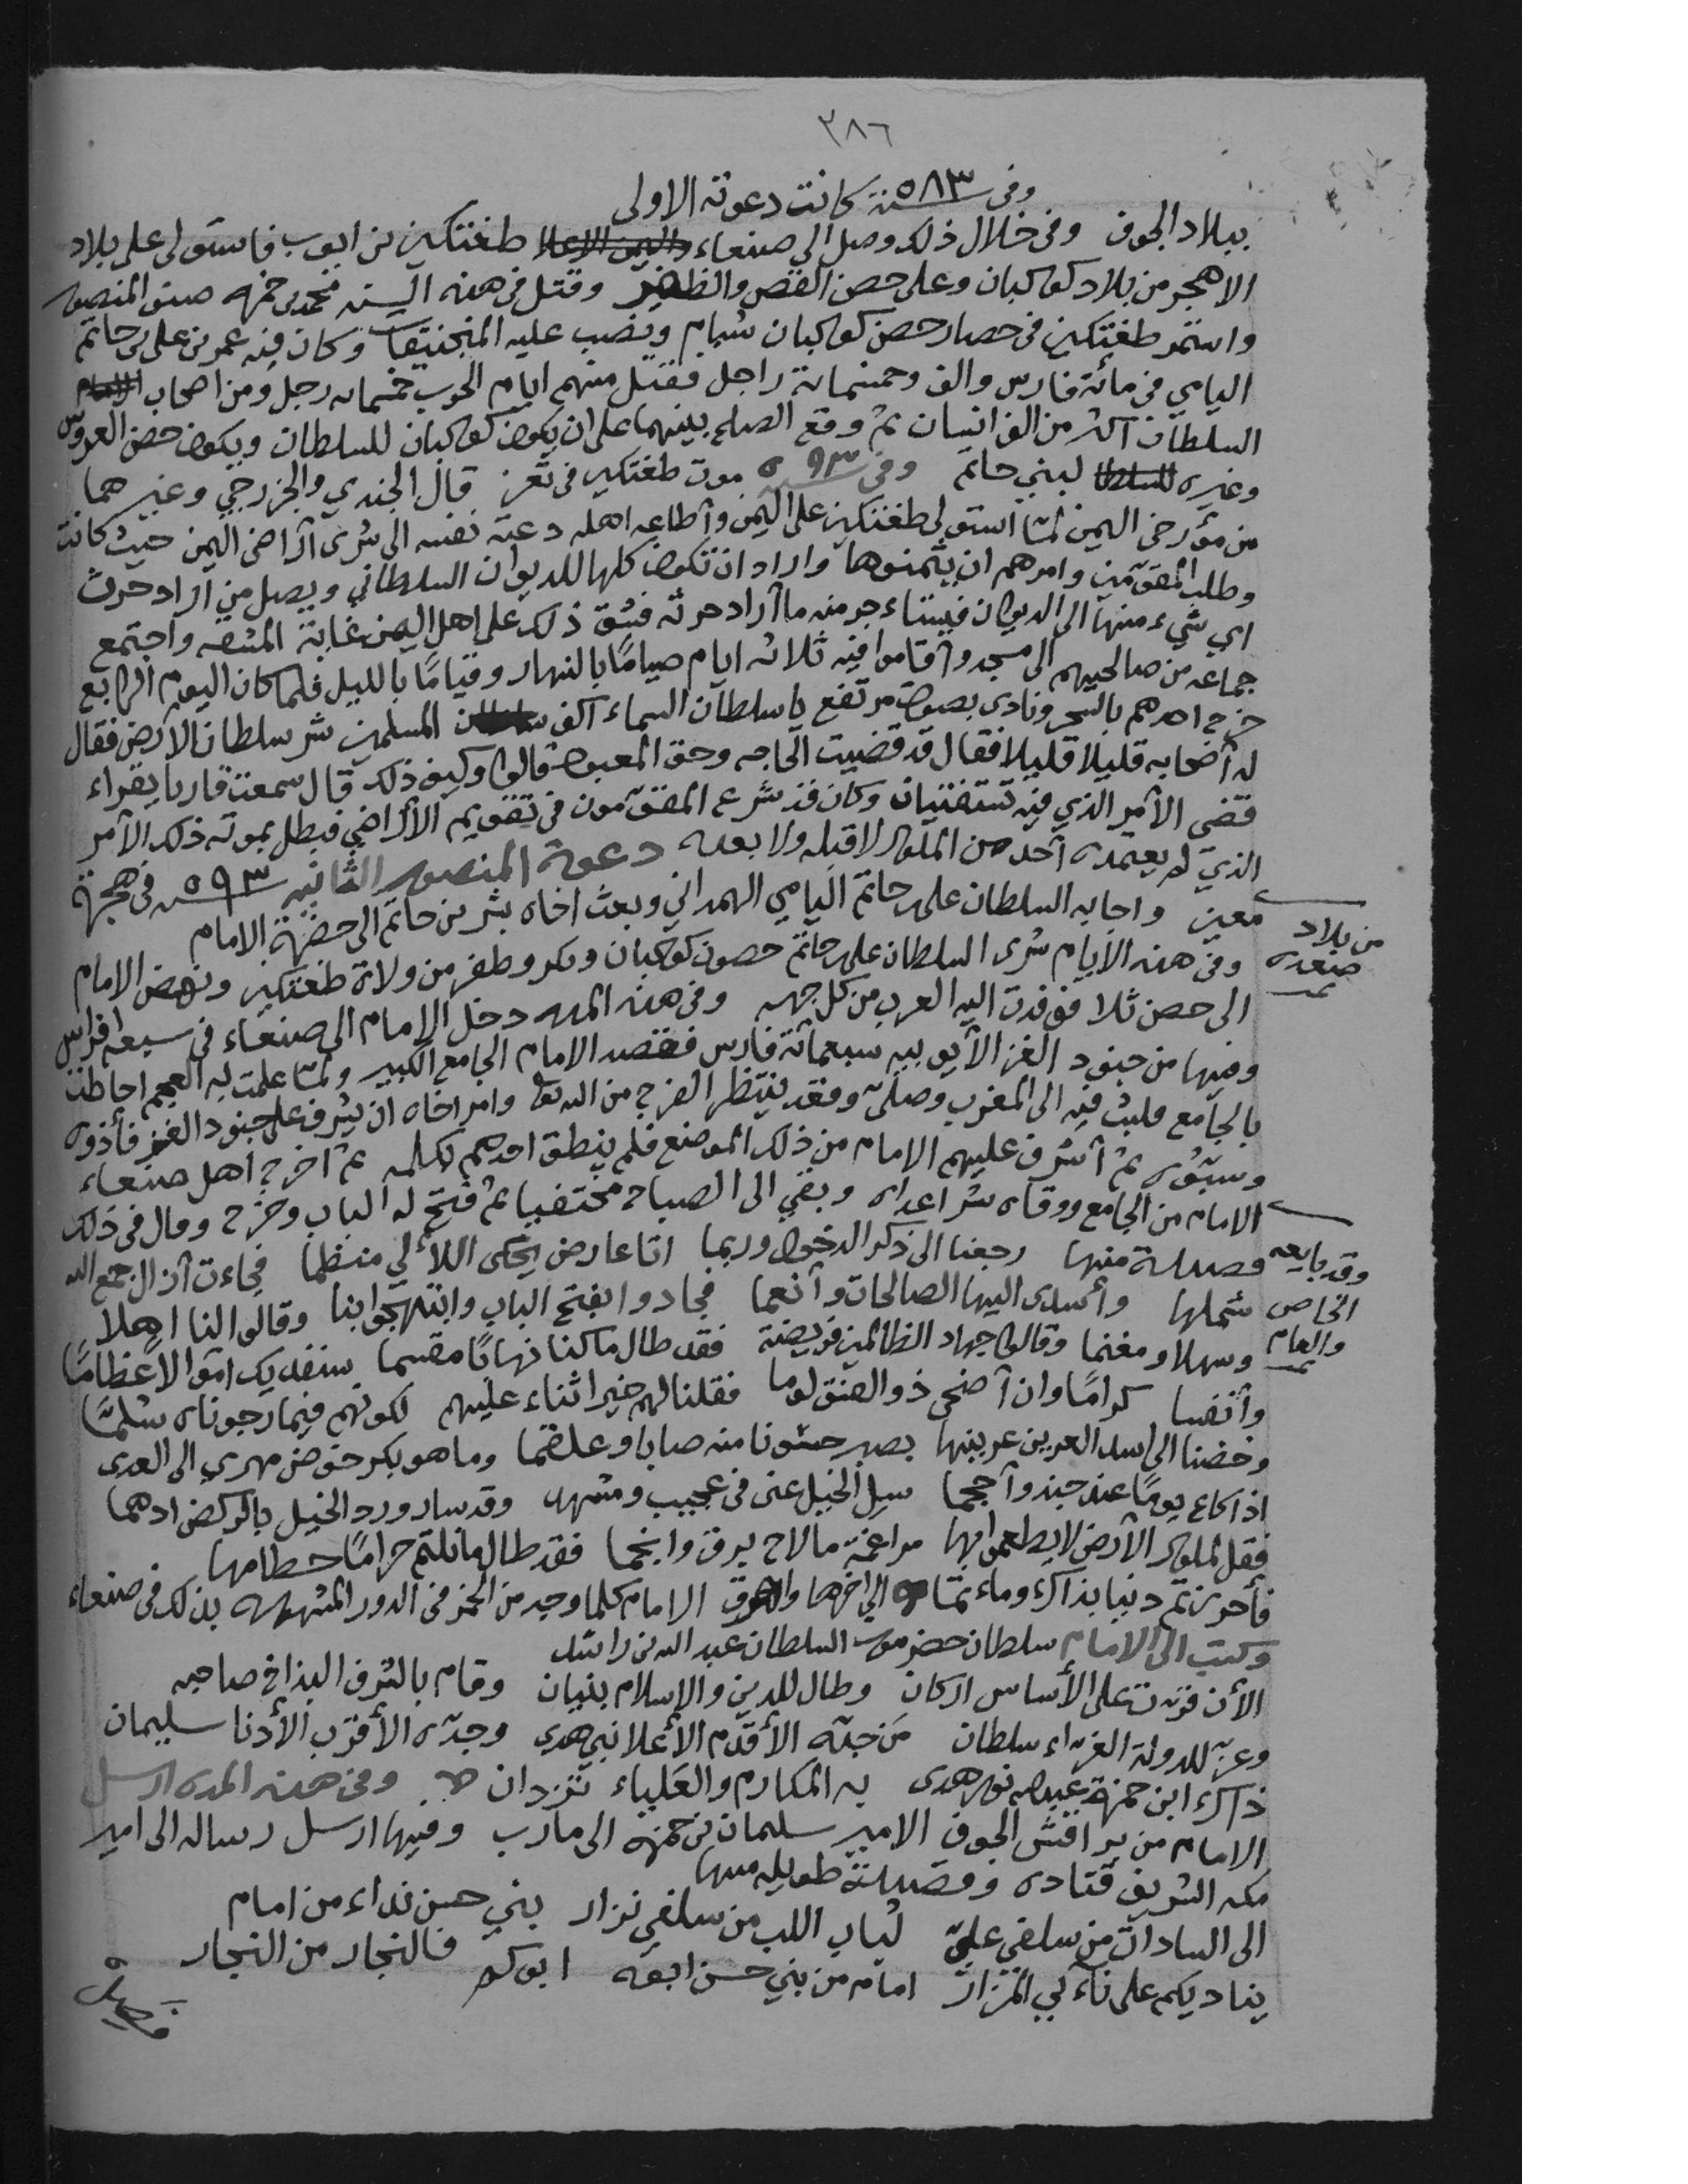 ٣٨٦
وفى سنة ٥٨٣ كانت دعوته الاولى
ببلاد الجوف وفى خلال ذلك وصل الى صنعاء طغتكين بن ايوب فاستولى على بلاد
الاهجر من بلاد كوكبان وعلى حصن الفص والظفير وقتل فى هذه السنه محمد بن حمزه صنو المنصور
واستمر طغتكين فى حصار حصن كوكبان شبام ونصب عليه المنجنيقات وكان فيه عمر بن على بن حاتم
اليامي فى مائة فارس والف وخمسمائة راجل فقتل منهم ايام الحرب خمسمائه رجل ومن اصحاب
السلطان اكثر من الف انسان ثم وقع الصلح بينهما على ان يكون كوكبان للسلطان ويكون حصن العروس
وغيره لبني حاتم وفى سنة ٥٩٣ موت طغتكين فى تعز قال الجندي والخزرجي وغيرهما
من مؤرخى اليمن لمّا استولى طغتكين على اليمن وأطاعه اهله دعته نفسه الى شرى أراضى اليمن حيث كانت
وطلب المقوّمين وامرهم ان يثمنوها واراد ان تكون كلها للديوان السلطاني ويصل من اراد حرث
اي شيء منها الى الديوان فيستاءجر منه ما أراد حرثه فشق ذلك على اهل اليمن غاية المشقه واجتمع
جماعه من صالحيهم الى مسجد وأقاموا فيه ثلاثه ايام صيامًا بالنهار وقيامًا بالليل فلما كان اليوم الرابع
خرج احدهم بالسحر ونادى بصوت مرتفع يا سلطان السماء اكف المسلمين شر سلطان الارض فقال
له أصحابه قليلا قليلا فقال قد قضيت الحاجه وحق المعبود قالوا وكيف ذلك قال سمعت قاريا يقراء
قضى الأمر الذي فيه تستفتيان وكان قد شرع المقوّمون فى تقويم الأراضي فبطل بموته ذلك الأمر
الذي لم يعتمده أحد من الملوك لا قبله ولا بعده دعوة المنصور الثانيه سنة ٥٩٣ فى هجرة
معين واجابه السلطان على بن حاتم اليامي الهمداني وبعث اخاه بشر بن حاتم الى حضرة الامام
من بلاد
صعده
وفى هذه الأيام شرى السلطان على بن حاتم حصون كوكبان وبكر وظفر من ولاة طغتكين ونهض الامام
الى حصن ثلا فوفدت اليه العرب من كل جهه وفى هذه المده دخل الامام الى صنعاء فى سبعه افراس
وفيها من جنود الغز الأيوبيه سبعمائة فارس فقصد الامام الجامع الكبير ولمّا علمت به العجم احاطت
بالجامع فلبث فيه الى المغرب وصلّى وقعد ينتظر الفرج من الله تعالى وامر اخاه ان يشرف على جنود الغز فأذوه
وسبّوه ثم أشرف عليهم الامام من ذلك الموضع فلم ينطق احدهم بكلمه ثم اخرج اهل صنعاء
الامام من الجامع ووقاه شر اعداه وبقي الى الصباح مختفيا ثم فتح له الباب وخرج وقال فى ذلك
وقد بايعه
الخاص
والعام
قصيدة منها رجعنا الى ذكر الدخول وربما اتا عارض يحكى اللألي منظما فجاءت أزال جمع الله
شملها وأسدى اليها الصالحات وأنعما فجادوا بفتح الباب وابتهجوا بنا وقالوا لنا اهلا
وسهلا ومغنما وقالوا جهاد الظالمين فريضة فقد طال ما كنا نهابًا مقسما سنفديك اموالا عظامًا
وأنفسا كرامًا وان أضحى ذو الصنو لوما فقلنا لهم خيرا ثناء عليهم لكونهم فيما رجوناه سُلمّا
وخضنا الى اسد العرين عرينها بصبر حسونا منه صابا وعلقما وما هو بكر خوض مهري الى العدى
اذا كاع يومًا عند جند وأحجما سل الخيل عنى فى عجيب ومشهد وقد سار ورد الخيل بالركض ادهما
فقل لملوك الأرض لا يطعموا بها مراغمة ما لاح برق وانجما فقد طال ما نلتم حرامًا حطامها
فأحرزتم دنيا بذاك وماءثمًا الى اخرها واهرق الامام كلما وجد من الخمر فى الدور المشهوره بذلك فى صنعاء
وكتب الى الامام سلطان حضرموت السلطان عبد الله بن راشد
الأن قرّت على الأساس اركان وطال للدين والإسلام بنيان وقام بالشرف البذاخ صاحبه
وعز للدولة الغراء سلطان مَن جدّه الأقدم الأعلا نبي هدى وجدّه الأقرب الأدنا سليمان
ذاك ابن حمزة عبد الله نور هدى به المكارم والعَلياء تزدان وفى هذه المده ارسل
الامام من براقش الجوف الامير سليمان بن حمزه الى مأرب وفيها ارسل رساله الى امير
مكه الشريف قتاده وقصيدة طويله منها
الى السادات من سلفي عليّ لُباب اللب من سلفي نزار بني حسن نداء من امام
يناديكم على نأي المزار امام من بني حسن ابوه ابوكم فالنجار من النجار